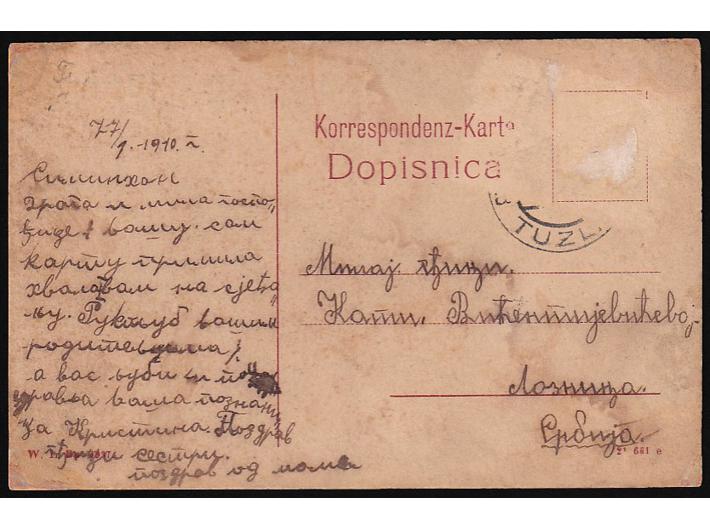 1.-1910. г.
Симинхан
Драга и мила госпо
ђице! вашу сам
карту примила
хвала вам на сјећа
њу. Рукљуб вашим
родитељима,
а вас љуби и поз
дравља ваша познани
ца Кристина. Поздрав
сестри.
поздрав од маме
Korrespondenz-Karte
Dopisnica
TUZL
Милај. г-ђици.
Кати.
Лозница.
Србија.
661 e